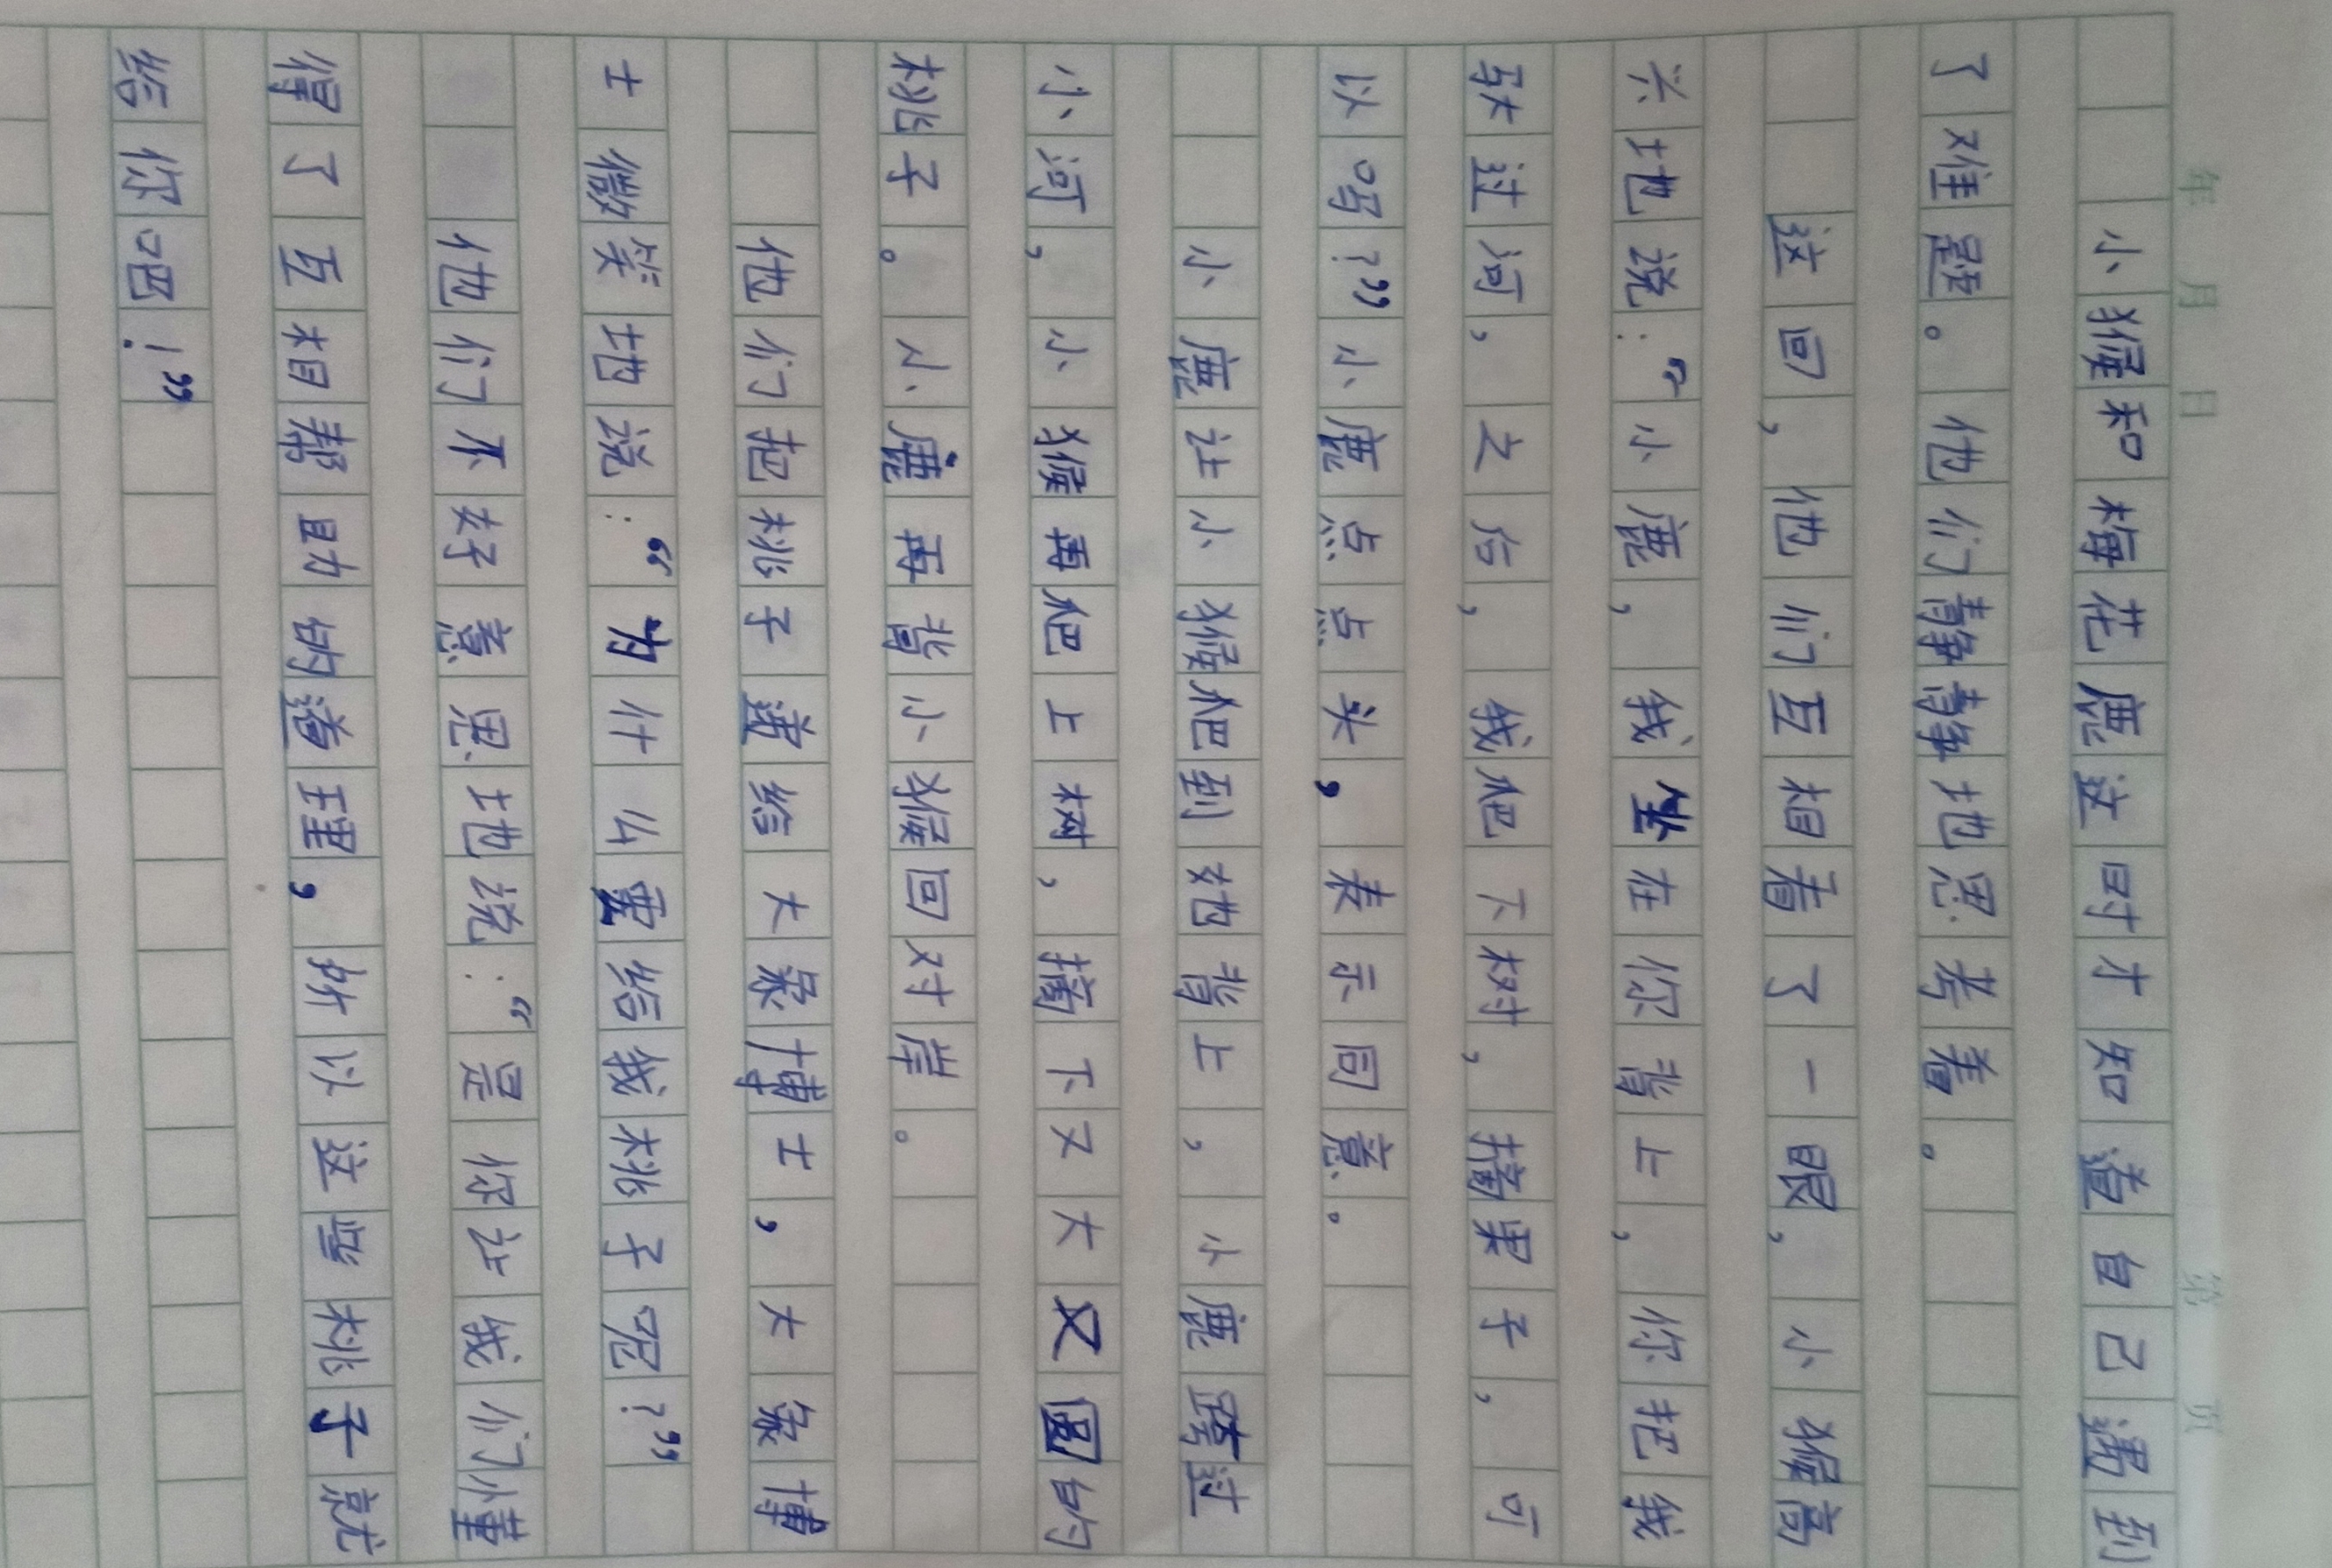 年 月 日 第 页
小猴和梅花鹿这时才知道自己遇到
了难题。他们静静地思考着。
这回，他们互相看了一眼，小猴高
兴地说：“小鹿，我坐在你背上，你把我
驮过河，之后，我爬下树，摘果子，可
以吗？”小鹿点点头，表示同意。
小鹿让小猴爬到她背上，小鹿跨过
小河，小猴再爬上树，摘下又大又圆的
桃子。小鹿再背小猴回对岸。
他们把桃子送给大象博士，大象博
士微笑地说：“为什么要给我桃子呢？”
他们不好意思地说：“是你让我们懂
得了互相帮助的道理，所以这些桃子就
给你吧！”